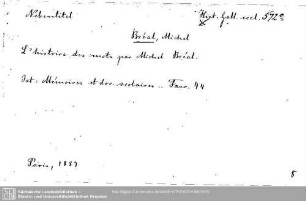 Nebentitel Hist. Gall. eccl. 592
Bréal, Michel
L'histoire des mots par Michel Bréal.
Jet. Mémoires et doc. scolaires .. Fasc. 44
Paris, 1887
8
Sächsische Landesbibliothek -
Staats- und Universitätsbibliothek Dresden